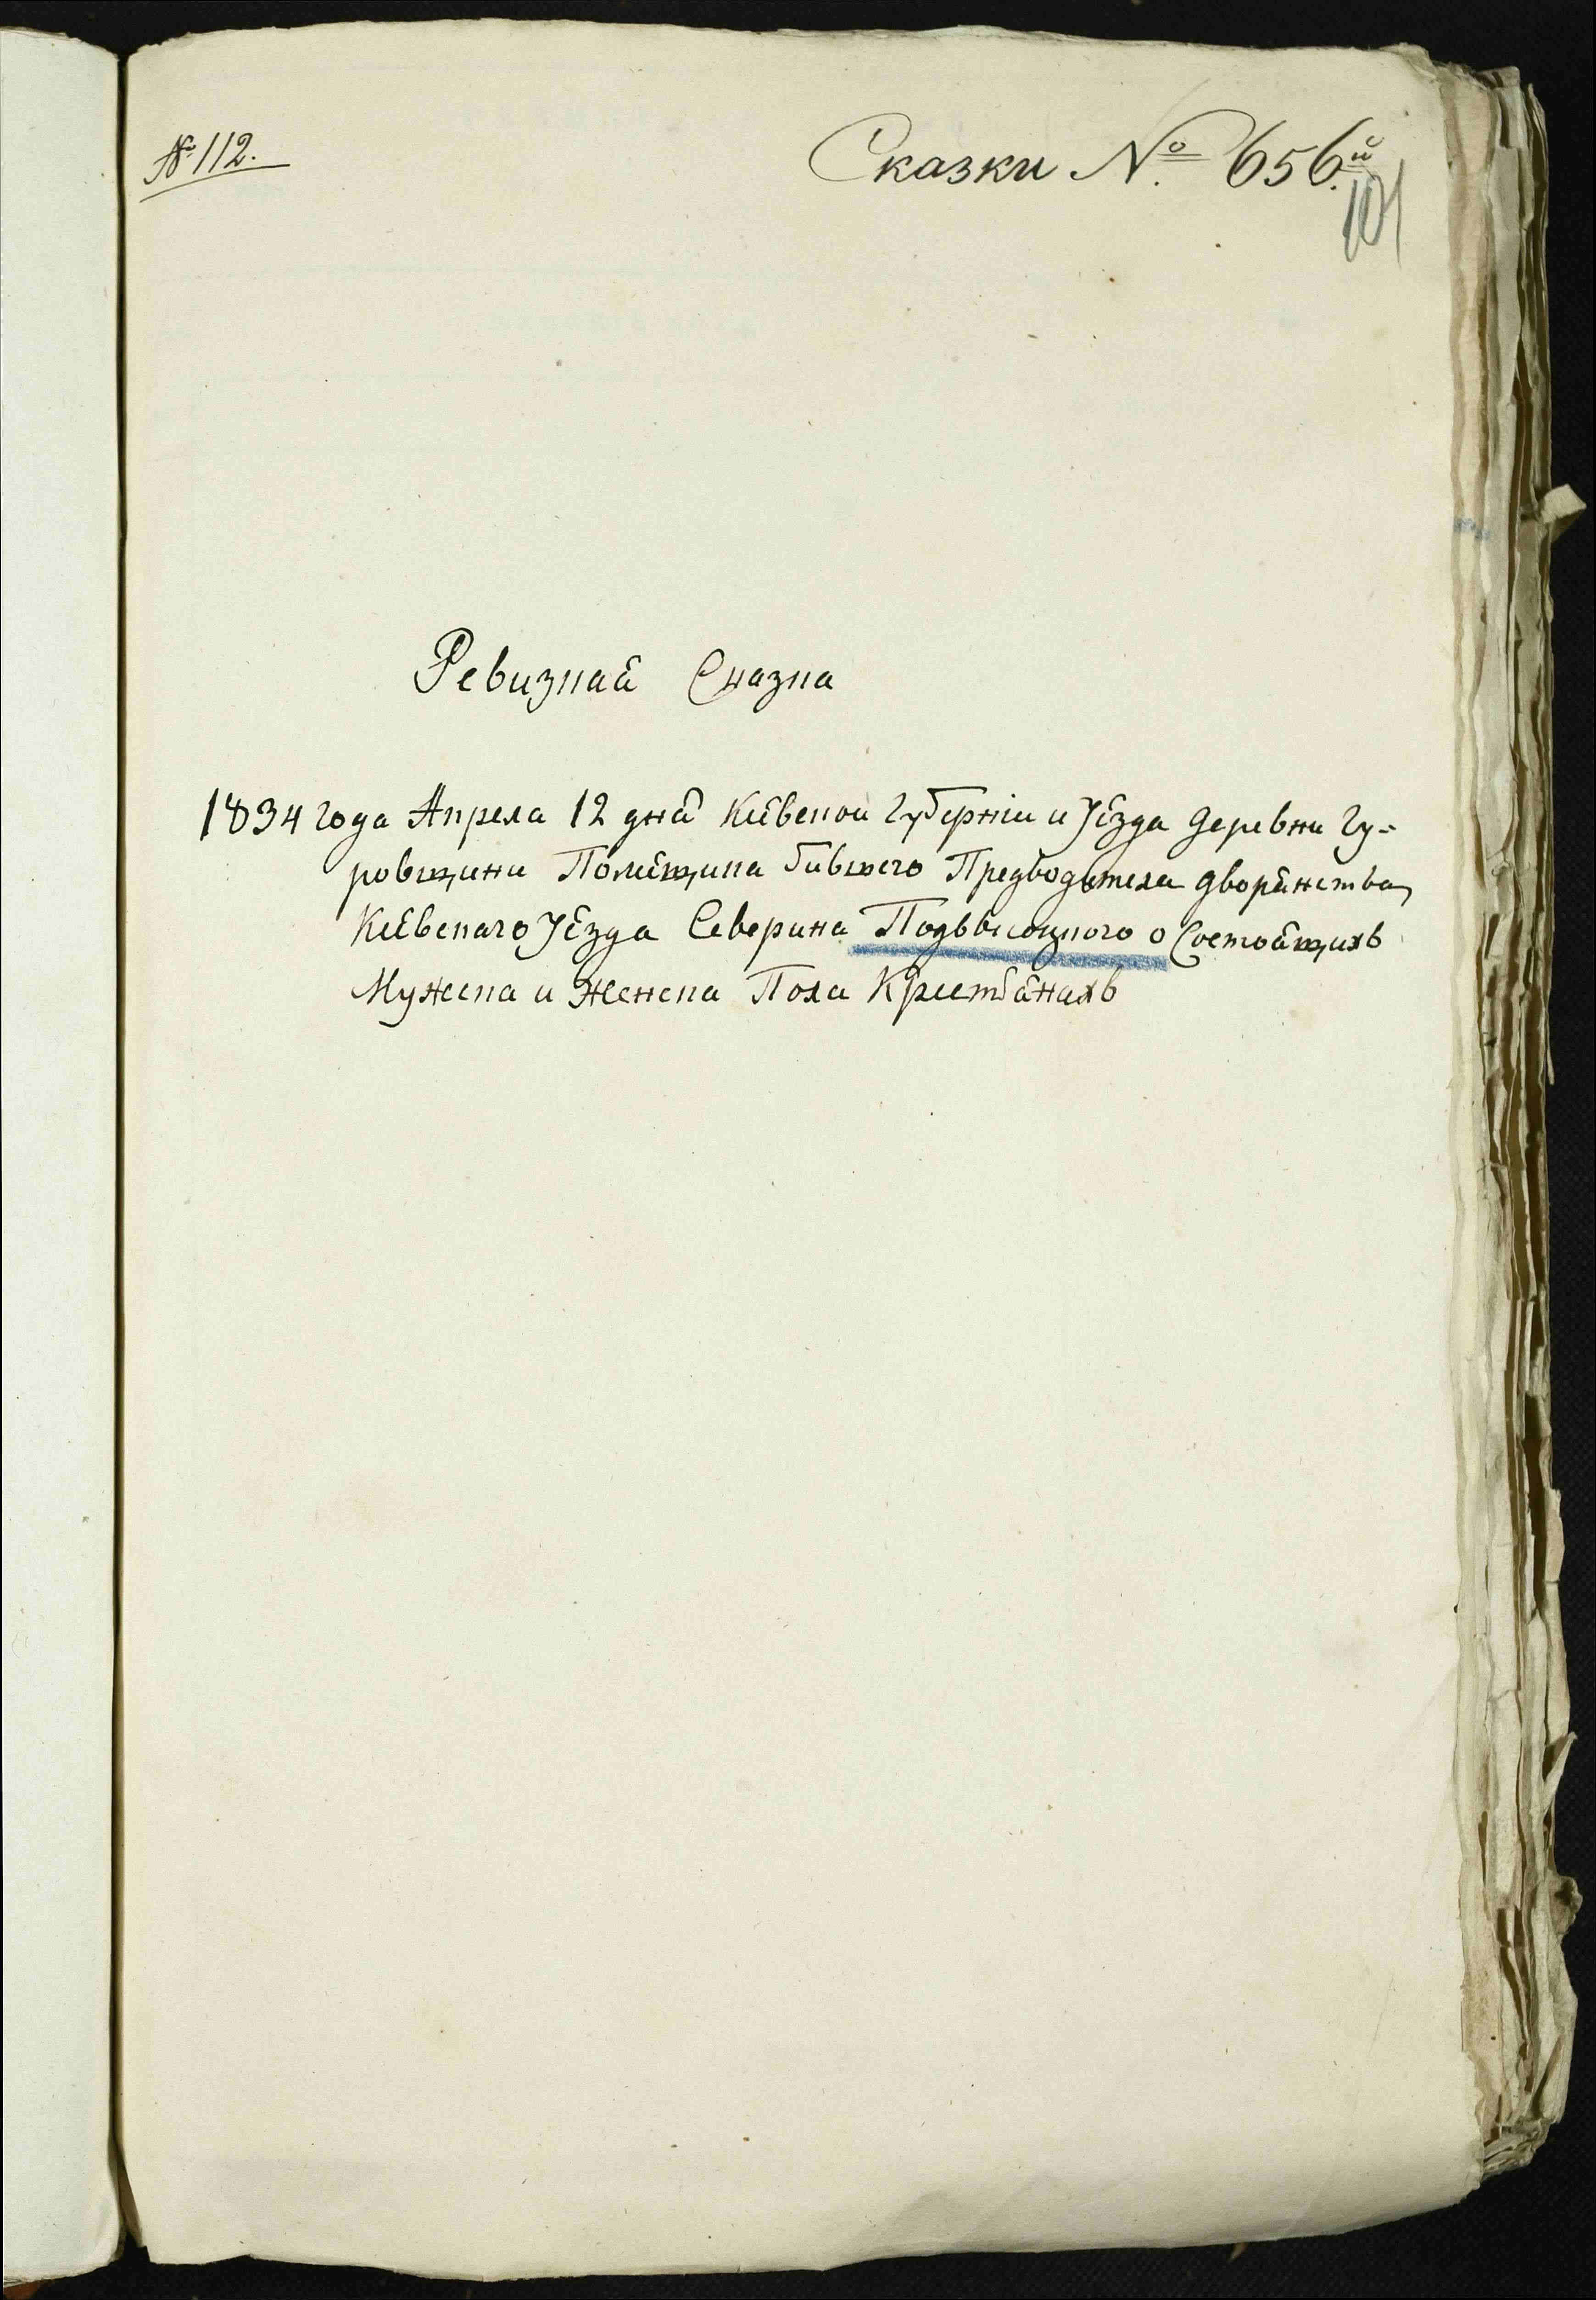 № 112.
Сказки №. 656.й
101
Ревизная Сказка
1834 года Апреля 12 дня Киевской Губерніи и Уезда Деревни Гу-
ровщини Помещика бившего Предводителя дворянства
Киевскаго Уезда Северина Подвысоцкого о Состоящихъ
Мужеска и Женска Пола Крестьянахъ